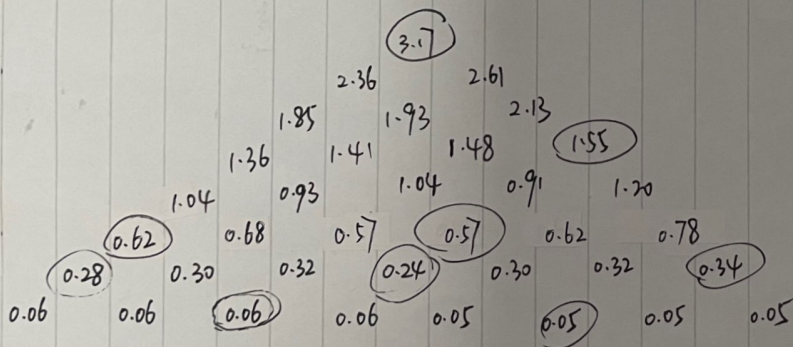 3.17
2.36 2.61
1.85 1.93 2.13
1.36 1.41 1.48 1.55
1.04 0.93 1.04 0.91 1.20
0.62 0.68 0.57 0.57 0.62 0.78
0.28 0.30 0.32 0.24 0.30 0.32 0.34
0.06 0.06 0.06 0.06 0.05 0.05 0.05 0.05